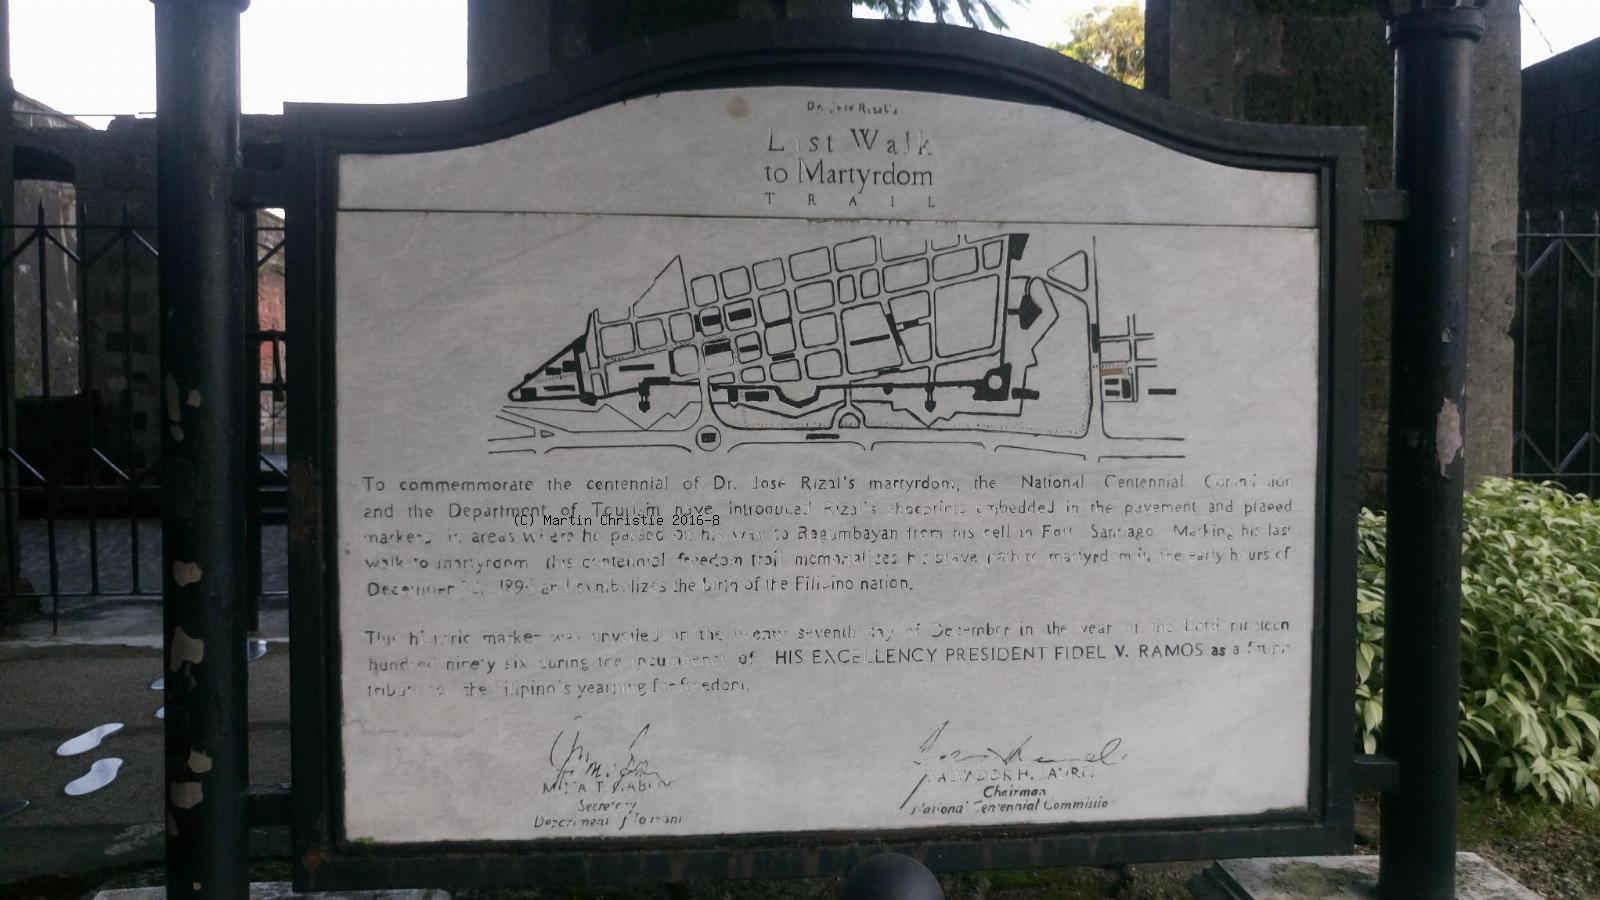 Dr. Jose Rizal's
Last Walk
to Martyrdom
TRAIL
To commemmorate the centennial of Dr. Jose Rizal's martyrdom, the National Centennial Commission
and the Department of Tourism have introduced Rizal's shoeprints embedded in the pavement and placed
(C) Martin Christie 2016-8
markers in areas where he passed on his way to Bagumbayan from his cell in Fort Santiago. Marking his last
walk to martyrdom this centennial freedom trail memorializes his brave path to martyrdom in the early hours of
December and symbolizes the birth of the Filipino nation.
This historic marker was unveiled on the twenty seventh day of December in the year of the Lord nineteen
hundred ninety six during the incumbency of HIS EXCELLENCY PRESIDENT FIDEL V. RAMOS as a fitting
tribute to the Filipino's yearning for freedom.
MINA T. GABOR
Secretary
Department of Tourism
SALVADOR H. LAUREL
Chairman
National Centennial Commission